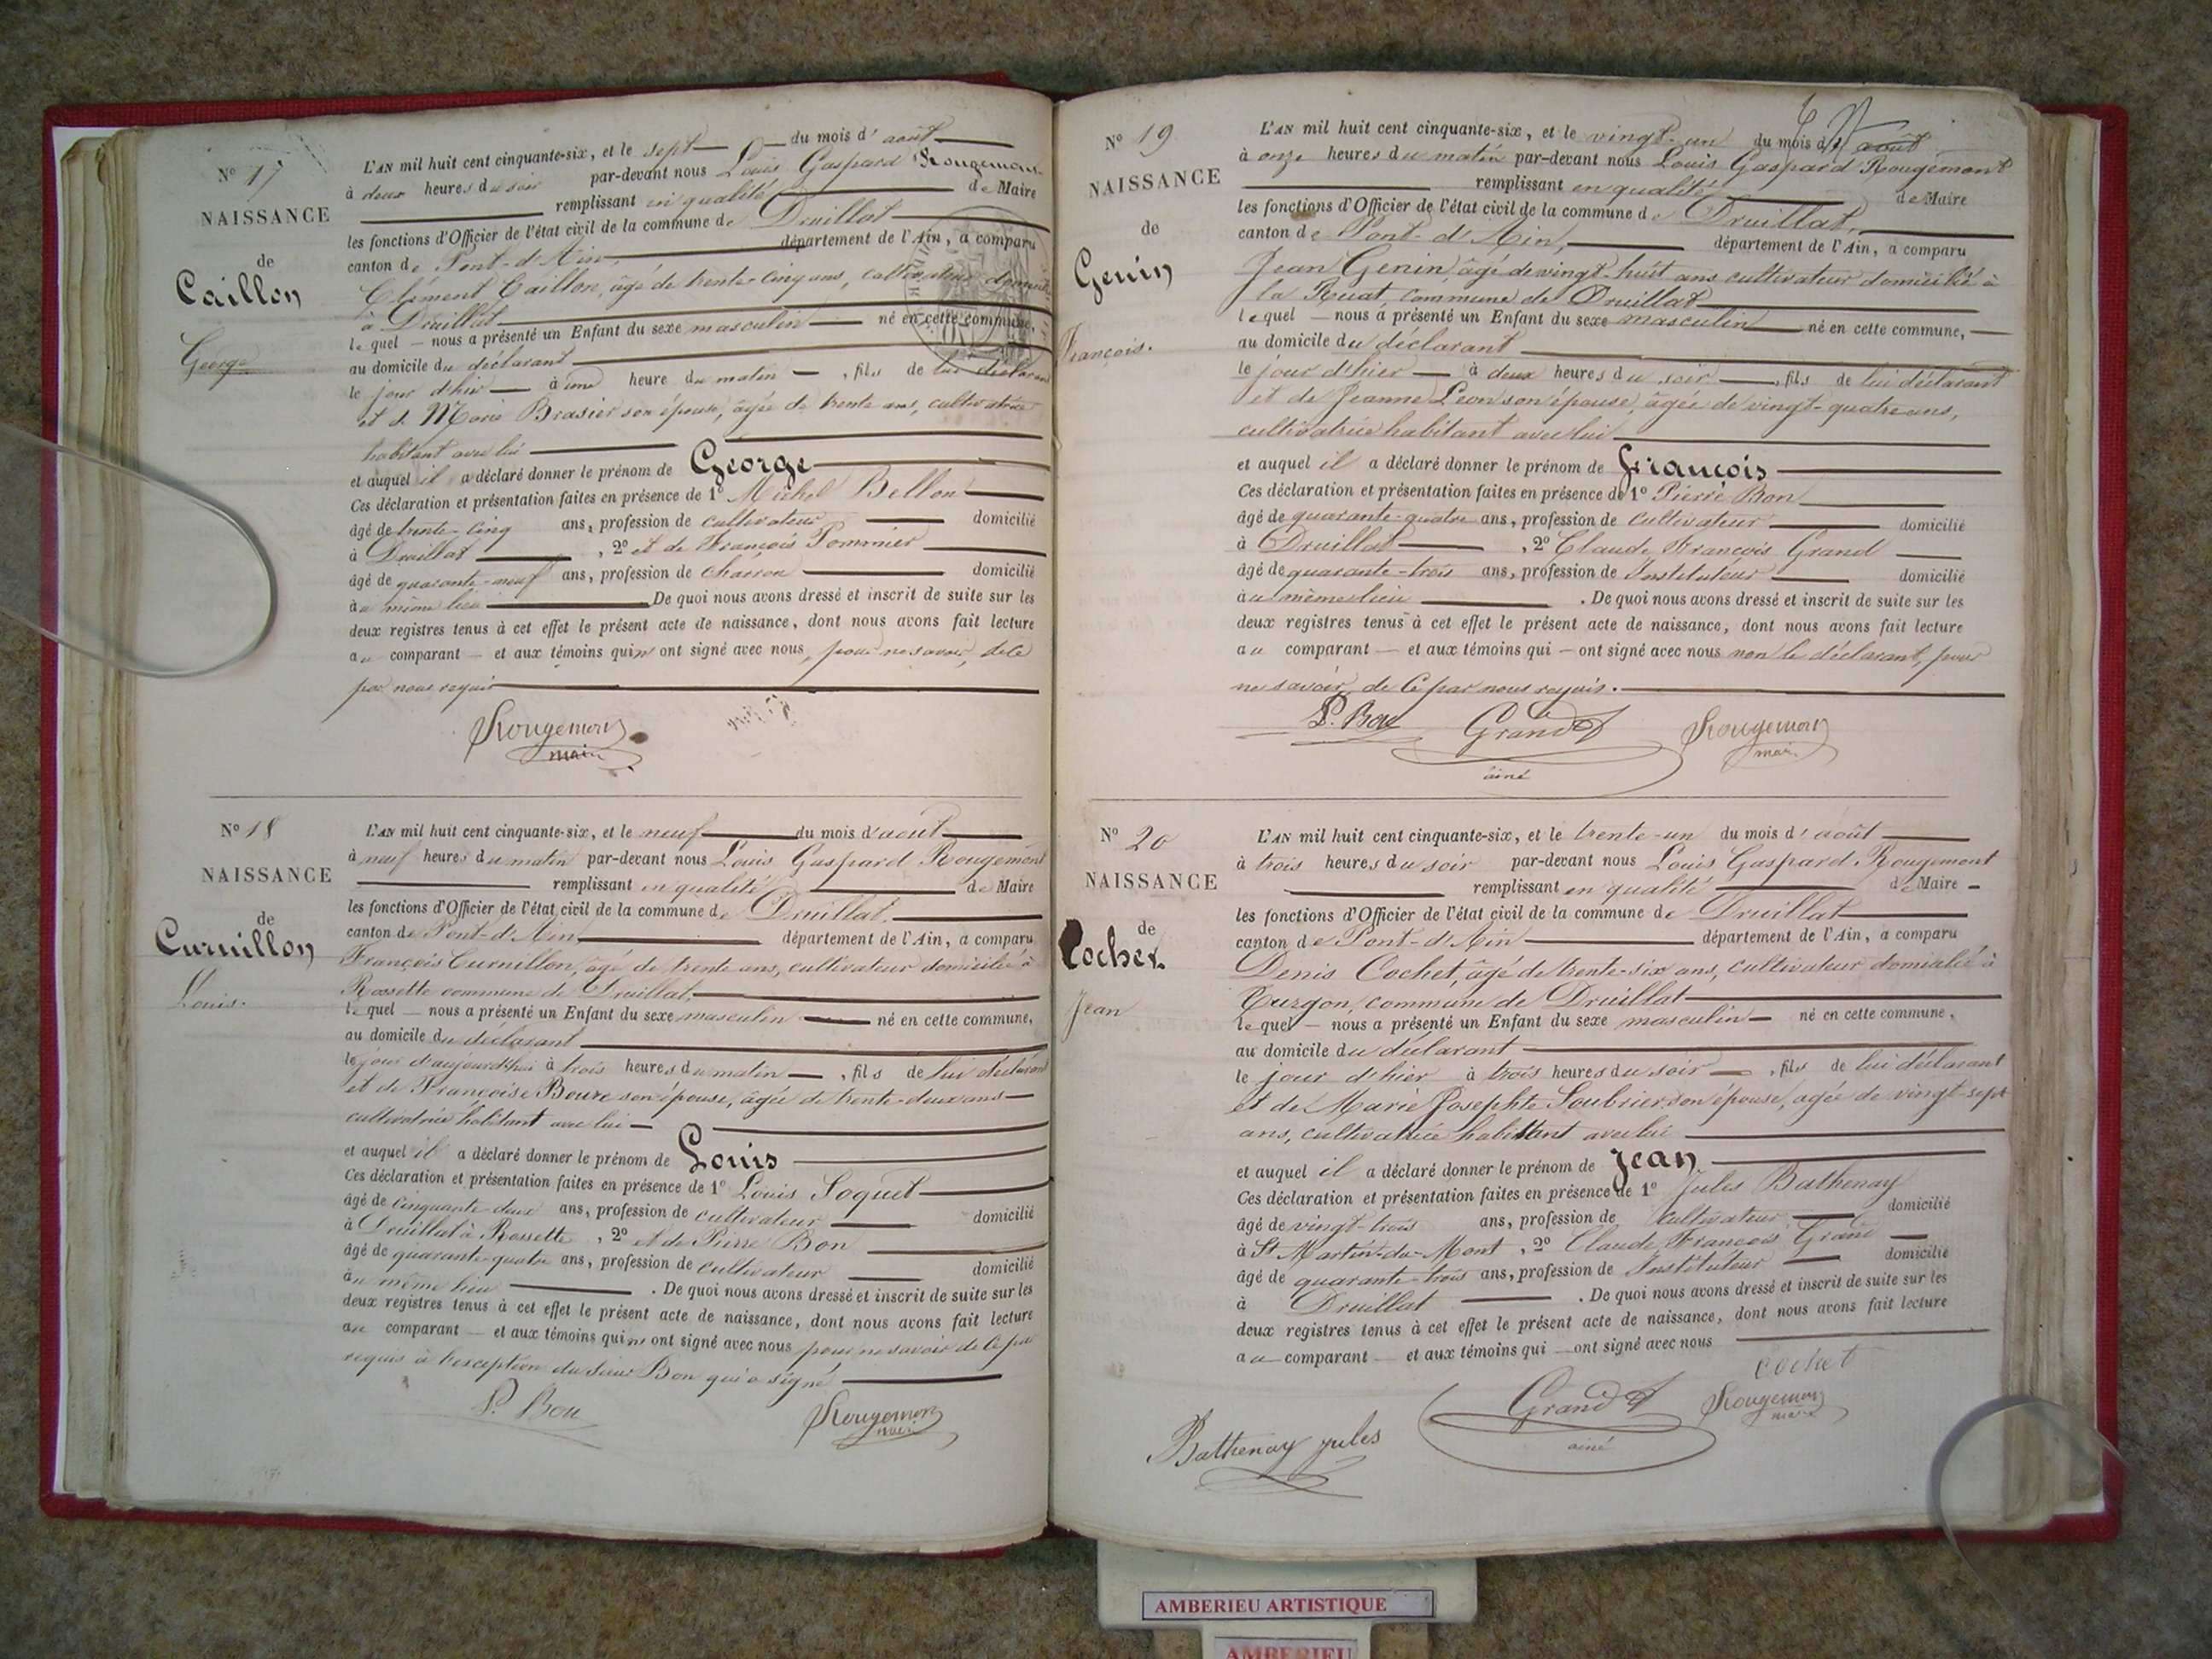 N° 17
NAISSANCE
de
Caillon
George
L'AN mil huit cent cinquante-six, et le sept du mois d'août
à deux heures du soir par-devant nous Louis Gaspard Rougemont
remplissant en qualité de Maire
les fonctions d'Officier de l'état civil de la commune de Druillat
canton de Pont-d'Ain, département de l'Ain, a comparu
Clément Caillon, âgé de trente-cinq ans, cultivateur domicilié
à Druillat
lequel nous a présenté un Enfant du sexe masculin né en cette commune,
au domicile du déclarant
le jour d'hier à une heure du matin, fils de lui déclarant
et de Marie Brasier son épouse, âgée de trente ans, cultivatrice
habitant avec lui
et auquel il a déclaré donner le prénom de George
Ces déclaration et présentation faites en présence de 1° Michel Bellon
âgé de trente-cinq ans, profession de cultivateur domicilié
à Druillat, 2° et de François Pommier
âgé de quarante-neuf ans, profession de charron domicilié
au même lieu De quoi nous avons dressé et inscrit de suite sur les
deux registres tenus à cet effet le présent acte de naissance, dont nous avons fait lecture
au comparant et aux témoins qui n'ont signé avec nous, pour ne savoir, de ce
par nous requis
Rougemont
maire
N° 18
NAISSANCE
de
Curnillon
Louis.
L'AN mil huit cent cinquante-six, et le neuf du mois d'août
à neuf heures du matin par-devant nous Louis Gaspard Rougemont
remplissant en qualité de Maire
les fonctions d'Officier de l'état civil de la commune de Druillat.
canton de Pont-d'Ain, département de l'Ain, a comparu
François Curnillon, âgé de trente ans, cultivateur domicilié à
Rossette commune de Druillat,
lequel nous a présenté un Enfant du sexe masculin né en cette commune,
au domicile du déclarant
le jour d'aujourd'hui à trois heures du matin, fils de lui déclarant
et de Françoise Bouvre son épouse, âgée de trente-deux ans
cultivatrice habitant avec lui
et auquel il a déclaré donner le prénom de Louis
Ces déclaration et présentation faites en présence de 1° Louis Soquet
âgé de cinquante-deux ans, profession de cultivateur domicilié
à Druillat à Rossette, 2° et de Pierre Bon
âgé de quarante-quatre ans, profession de cultivateur domicilié
au même lieu. De quoi nous avons dressé et inscrit de suite sur les
deux registres tenus à cet effet le présent acte de naissance, dont nous avons fait lecture
au comparant et aux témoins qui n'ont signé avec nous pour ne savoir de ce par
requis à l'exception du sieur Bon qui a signé
P. Bon Rougemont
maire
N° 19
NAISSANCE
de
Genin
François.
L'AN mil huit cent cinquante-six, et le vingt-un du mois d'août
à onze heures du matin par-devant nous Louis Gaspard Rougemont
remplissant en qualité de Maire
les fonctions d'Officier de l'état civil de la commune de Druillat,
canton de Pont-d'Ain, département de l'Ain, a comparu
Jean Genin, âgé de vingt-huit ans cultivateur domicilié à
la Ruat, commune de Druillat
lequel nous a présenté un Enfant du sexe masculin né en cette commune,
au domicile du déclarant
le jour d'hier à deux heures du soir, fils de lui déclarant
et de Jeanne Léon son épouse, âgée de vingt-quatre ans,
cultivatrice habitant avec lui
et auquel il a déclaré donner le prénom de François
Ces déclaration et présentation faites en présence de 1° Pierre Bon
âgé de quarante-quatre ans, profession de cultivateur domicilié
à Druillat, 2° Claude François Grand
âgé de quarante-trois ans, profession de Instituteur domicilié
au même lieu. De quoi nous avons dressé et inscrit de suite sur les
deux registres tenus à cet effet le présent acte de naissance, dont nous avons fait lecture
au comparant et aux témoins qui ont signé avec nous non le déclarant, pour
ne savoir, de ce par nous requis.
P. Bon Grand Rougemont
ainé maire
N° 20
NAISSANCE
de
Cochet
Jean
L'AN mil huit cent cinquante-six, et le trente-un du mois d'août
à trois heures du soir par-devant nous Louis Gaspard Rougemont
remplissant en qualité de Maire
les fonctions d'Officier de l'état civil de la commune de Druillat
canton de Pont-d'Ain département de l'Ain, a comparu
Denis Cochet, âgé de trente-six ans, cultivateur domicilié à
Turgon, commune de Druillat
lequel nous a présenté un Enfant du sexe masculin né en cette commune,
au domicile du déclarant
le jour d'hier à trois heures du soir, fils de lui déclarant
et de Marie Josephte Soubrier son épouse, âgée de vingt-sept
ans, cultivatrice habitant avec lui
et auquel il a déclaré donner le prénom de Jean
Ces déclaration et présentation faites en présence de 1° Jules Bathenay
âgé de vingt-trois ans, profession de cultivateur domicilié
à St Martin-du-Mont, 2° Claude François Grand
âgé de quarante-trois ans, profession de Instituteur domicilié
à Druillat. De quoi nous avons dressé et inscrit de suite sur les
deux registres tenus à cet effet le présent acte de naissance, dont nous avons fait lecture
au comparant et aux témoins qui ont signé avec nous
Cochet
Bathenay jules Grand Rougemont
ainé maire
AMBERIEU ARTISTIQUE
AMBERIEU